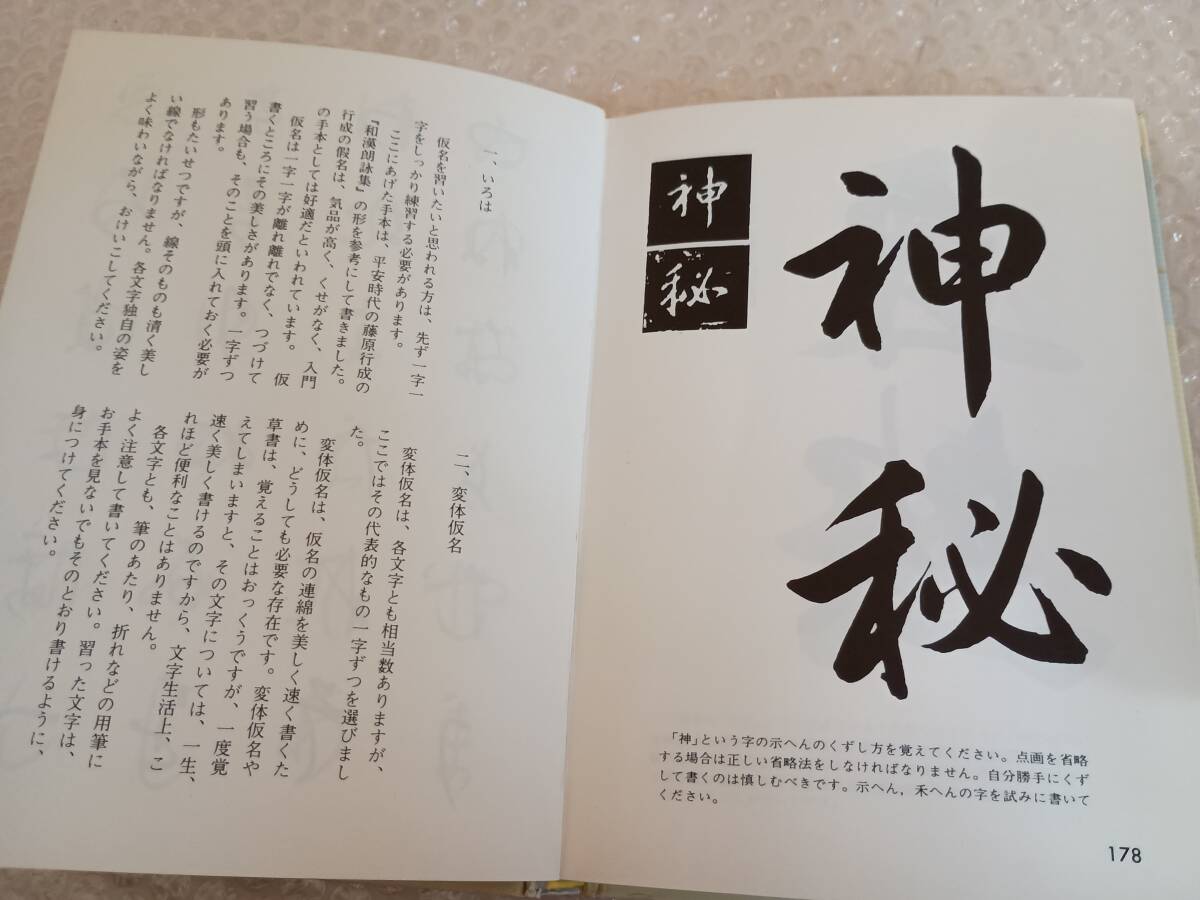 一、いろは
仮名を習いたいと思われる方は、先ず一字一
字をしっかり練習する必要があります。
ここにあげた手本は、平安時代の藤原行成の
『和漢朗詠集』の形を参考にして書きました。
行成の假名は、気品が高く、くせがなく、入門
の手本としては好適だといわれています。
仮名は一字一字が離れ離れでなく、つづけて
書くところにその美しさがあります。一字ずつ
習う場合も、そのことを頭に入れておく必要が
あります。
形もたいせつですが、線そのものも清く美し
い線でなければなりません。各文字独自の姿を
よく味わいながら、おけいこしてください。
仮
二、変体仮名
変体仮名は、各文字とも相当数ありますが、
ここではその代表的なもの一字ずつを選びまし
た。
変体仮名は、仮名の連綿を美しく速く書くた
めに、どうしても必要な存在です。変体仮名や
草書は、覚えることはおっくうですが、一度覚
えてしまいますと、その文字については、一生、
速く美しく書けるのですから、文字生活上、こ
れほど便利なことはありません。
各文字とも、筆のあたり、折れなどの用筆に
よく注意して書いてください。習った文字は、
お手本を見ないでもそのとおり書けるように、
身につけてください。
神秘
神
秘
「神」という字の示へんのくずし方を覚えてください。点画を省略
する場合は正しい省略法をしなければなりません。自分勝手にくず
して書くのは慎しむべきです。示へん，禾へんの字を試みに書いて
ください。
178